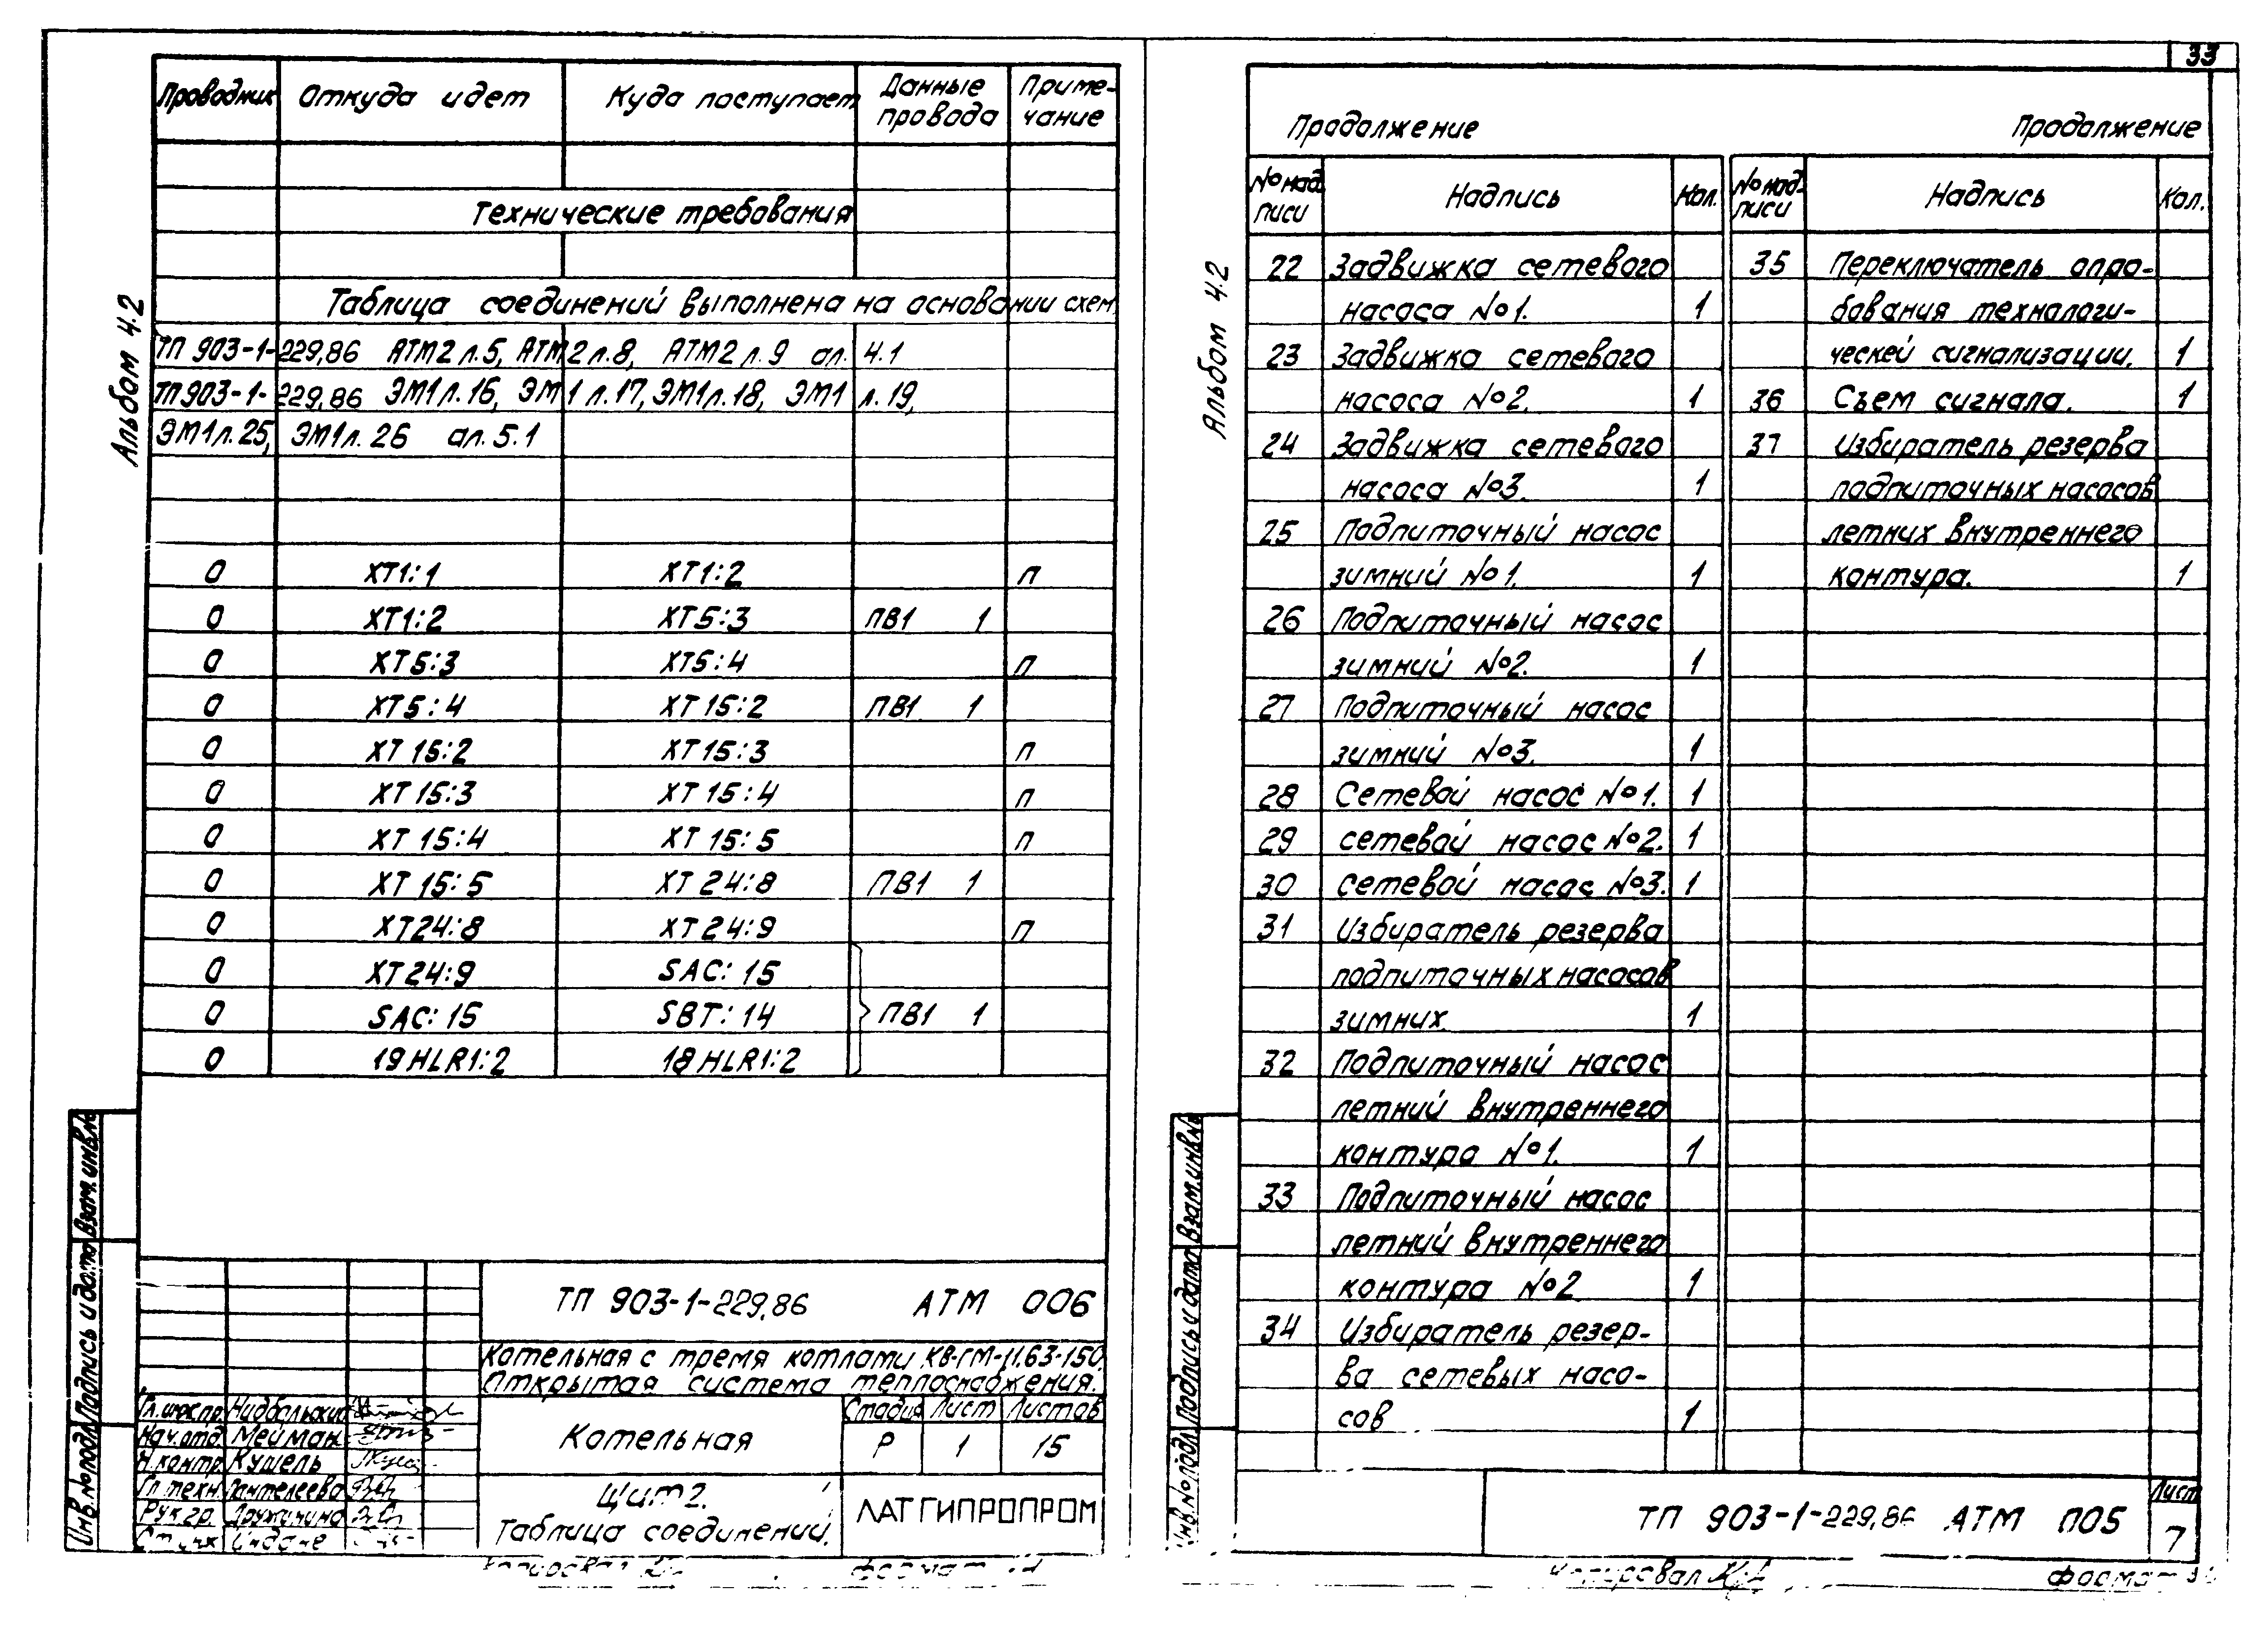 Альбом 4.2
Проводник Откуда идет Куда поступает Данные провода Приме-чание
Технические требования
Таблица соединений выполнена на основании схем
ТП 903-1-229.86 АТМ2 л.5, АТМ2 л.8, АТМ2 л.9 ал. 4.1
ТП 903-1-229.86 ЭМ1 л.16, ЭМ1 л.17, ЭМ1 л.18, ЭМ1 л.19,
ЭМ1 л.25, ЭМ1 л.26 ал. 5.1
0 XT1:1 XT1:2 п
0 XT1:2 XT5:3 ПВ1 1
0 XT5:3 XT5:4 п
0 XT5:4 XT15:2 ПВ1 1
0 XT15:2 XT15:3 п
0 XT15:3 XT15:4 п
0 XT15:4 XT15:5 п
0 XT15:5 XT24:8 ПВ1 1
0 XT24:8 XT24:9 п
0 XT24:9 SAC:15
0 SAC:15 SBT:14 ПВ1 1
0 19HLR1:2 18HLR1:2
Взам.инв.№
Подпись и дата
Инв.№подл.
ТП 903-1-229.86 АТМ 006
Котельная с тремя котлами КВ-ГМ-11.63-150.
Открытая система теплоснабжения.
Котельная
Стадия Лист Листов
Р 1 15
Нач.отд. Мейман
Н.контр. Кушель
Гл.техн. Пантелеева
Рук.гр. Дружинина
Щит 2.
Таблица соединений.
ЛАТГИПРОПРОМ
33
Альбом 4.2
Продолжение Продолжение
№ над-писи Надпись Кол. № над-писи Надпись Кол.
22 Задвижка сетевого
насоса №1. 1
23 Задвижка сетевого
насоса №2. 1
24 Задвижка сетевого
насоса №3. 1
25 Подпиточный насос
зимний №1. 1
26 Подпиточный насос
зимний №2. 1
27 Подпиточный насос
зимний №3. 1
28 Сетевой насос №1. 1
29 сетевой насос №2. 1
30 сетевой насос №3. 1
31 Избиратель резерва
подпиточных насосов
зимних. 1
32 Подпиточный насос
летний внутреннего
контура №1. 1
33 Подпиточный насос
летний внутреннего
контура №2 1
34 Избиратель резер-
ва сетевых насо-
сов 1
35 Переключатель опро-
бования технологи-
ческой сигнализации. 1
36 Съем сигнала. 1
37 Избиратель резерва
подпиточных насосов
летних внутреннего
контура. 1
Взам.инв.№
Подпись и дата
Инв.№подл.
ТП 903-1-229.86 АТМ П05
Лист
7
Копировал
Формат